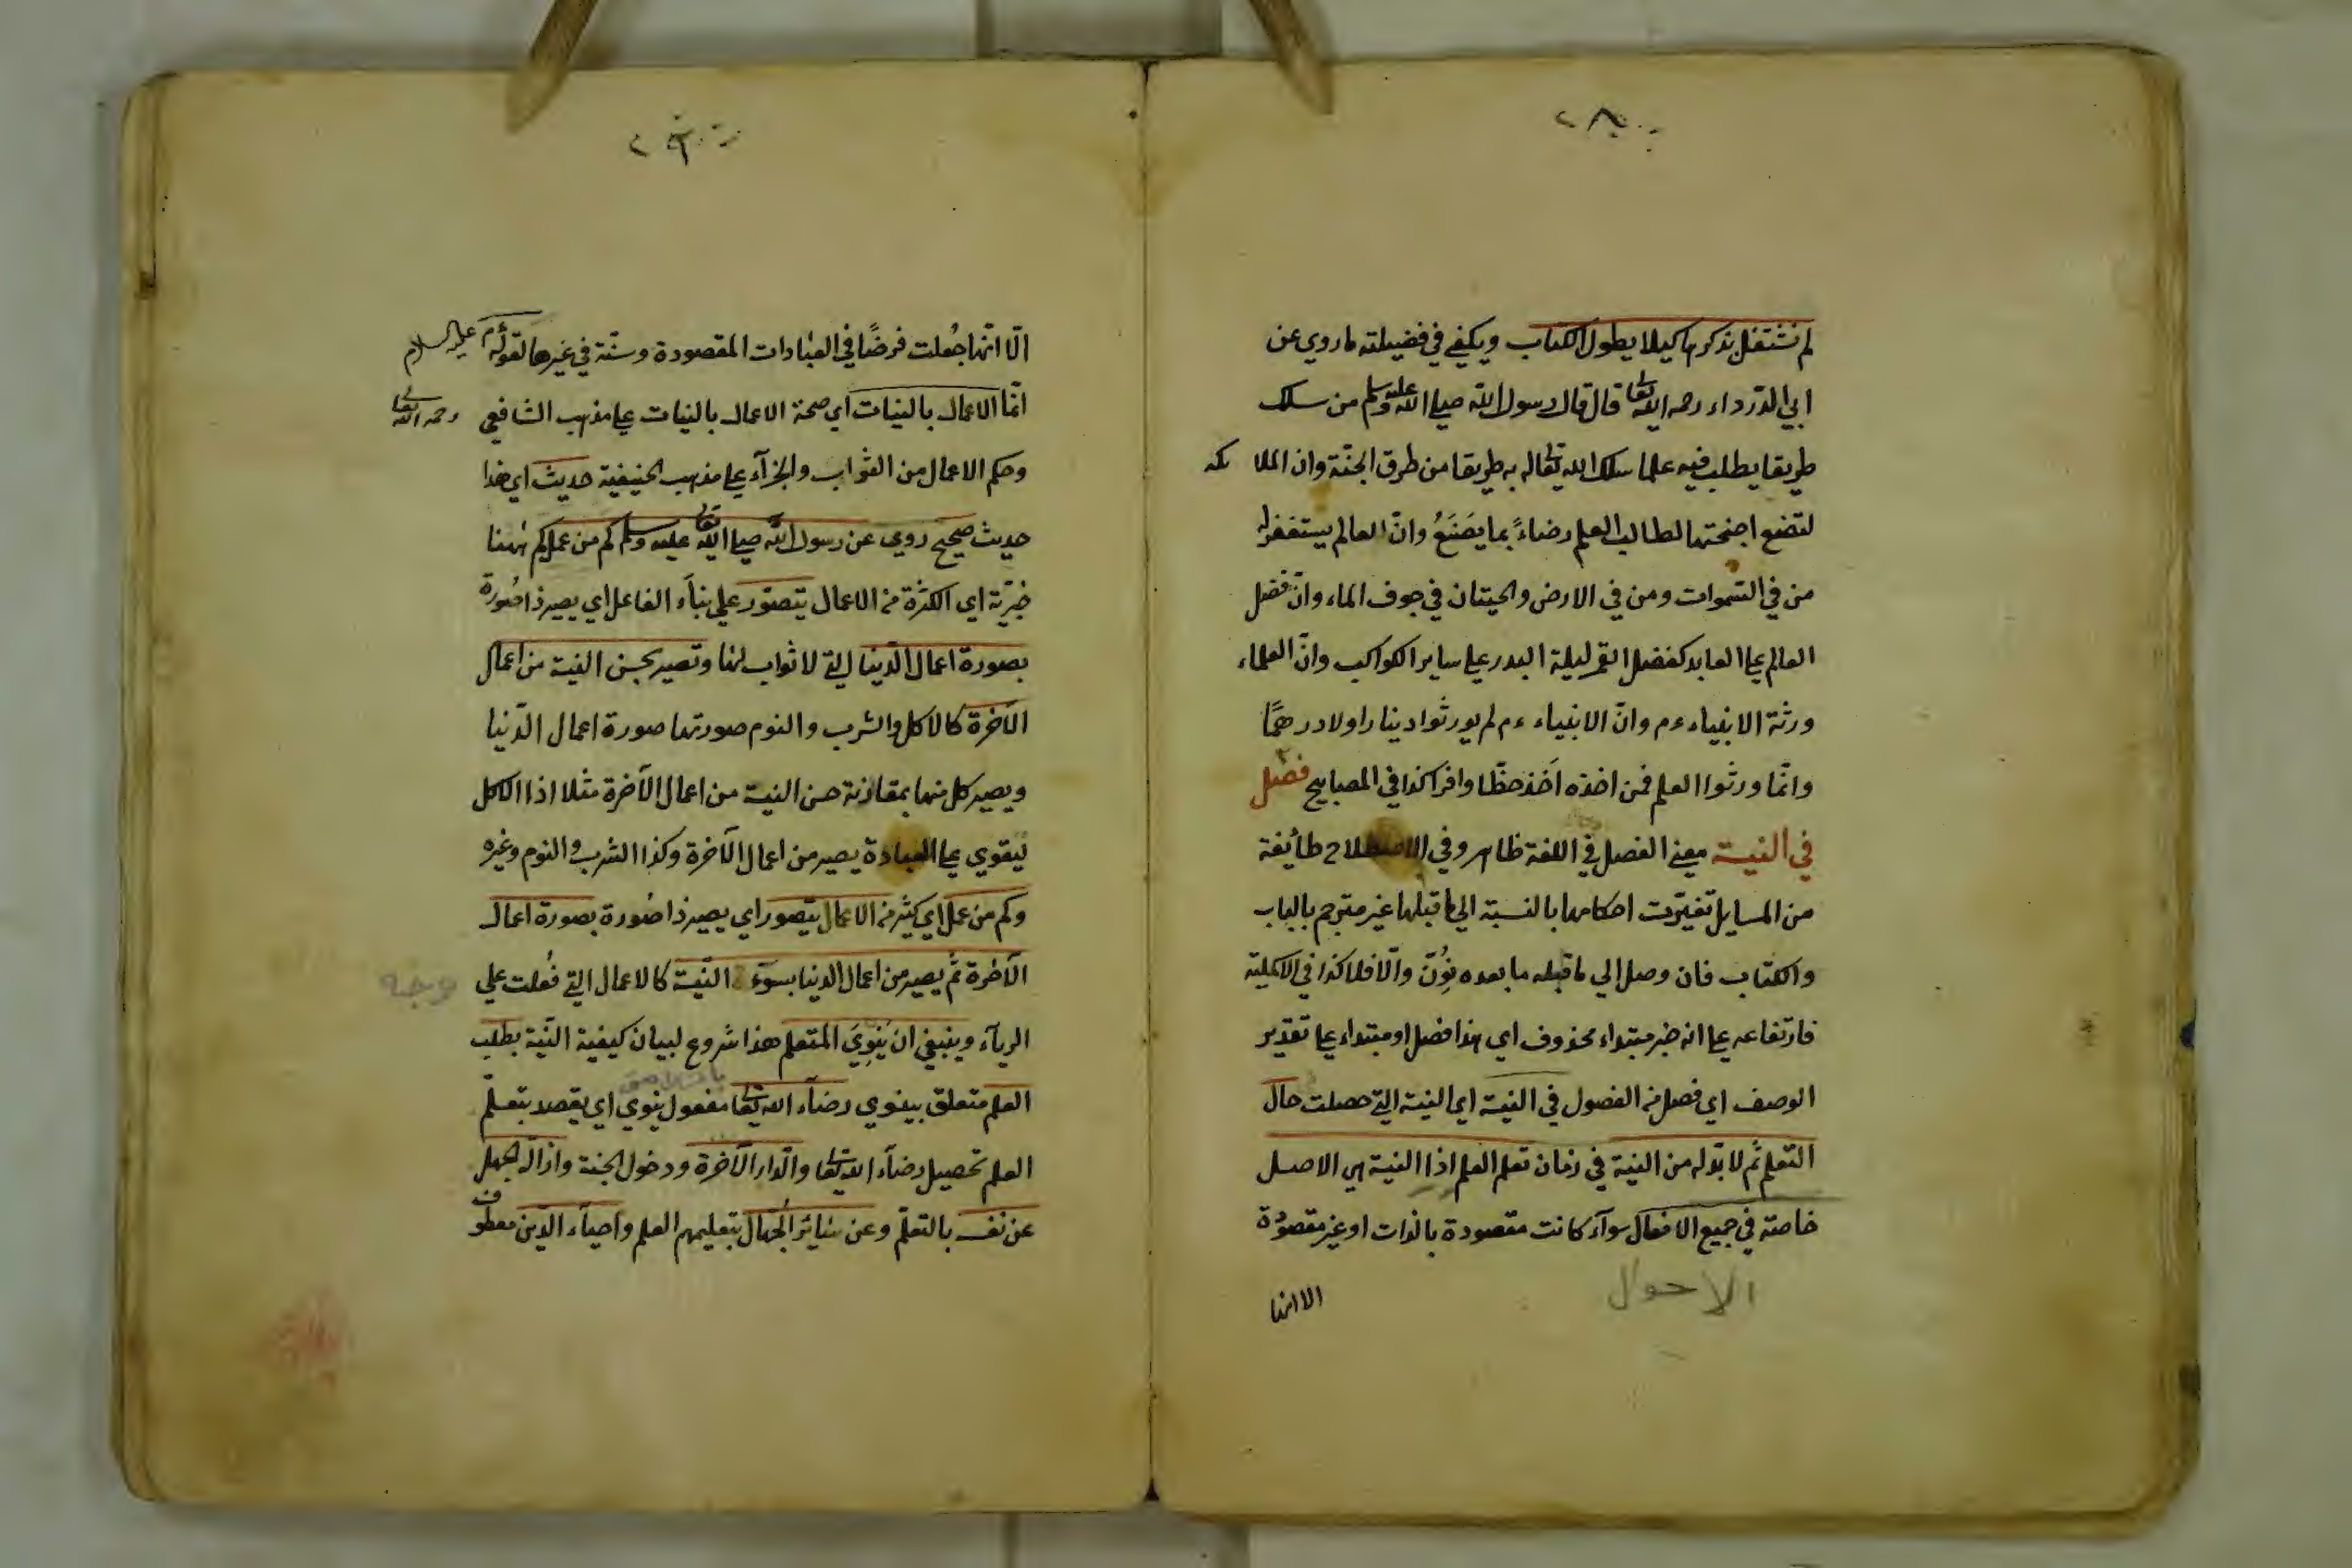 لم نشتغل بذكرها كيلا يطول الكتاب ويكفي في فضيلته ما روي عن
ابي الدّرداء رحمه الله تعالى قال قال رسول الله صلى الله عليه وسلم من سلك
طريقا يطلب فيه علما سلك الله تعالى به طريقا من طرق الجنّة وان الملا ئكة
لتضع اجنحتها لطالب العلم رضاءً بما يصَنَعُ وانّ العالم يستغفر له
من في السّموات ومن في الارض والحيتان في جوف الماء وانّ فضل
العالم على العابد كفضل القمر ليلة البدر على ساير الكواكب وانّ العلماء
ورثة الانبياء ءم وانّ الانبياء ءم لم يورثوا دينارا ولا درهمًا
وانّما ورثوا العلم فمن اخذه اَخَذ حظّا وافرا كذا في المصابيح فصل
في النية معنى الفصل في اللغة ظاهر وفي الاصطلاح طائفة
من المسايل تغيّرت احكامها بالنسبة الى ما قبلها غير مترجم بالباب
والكتاب فان وصل الى ما قبله ما بعده نُوِّنَ والّا فلا كذا في الاكملية
فارتفاعه على انه خبر مبتداء محذوف اي هذا فصل او مبتداء على تقدير
الوصف اي فصل من الفصول في النية اي النية التي حصلت حال
التعلم ثم لا بدّ له من النية في زمان تعلم العلم اذ النية هي الاصل
خاصة في جميع الافعال سوآء كانت مقصودة بالذات او غير مقصودة
الاحوال
الا انها
الّا انّها جُعلت فرضًا في العبادات المقصودة وسنّة في غيرها لقوله م عليه السلام
انّما الاعمال بالنيات اي صحة الاعمال بالنيات على مذهب الشافعي رحمه الله تعالى
وحكم الاعمال من الثواب والجزآء على مذهب الحنيفية حديث اي هذا
حديث صحيح روي عن رسول الله صلى الله تعالى عليه وسلم كم من عمل كم ههنا
خبريّة اي الكثرة من الاعمال يتصوّر على بنآء الفاعل اي يصير ذا صُورة
بصورة اعمال الدّنيا التي لا ثواب لها وتصير بحسن النية من اعمال
الآخرة كالاكل والشرب والنوم صورتها صورة اعمال الدّنيا
ويصير كل منها بمقارنة حسن النية من اعمال الآخرة مثلا اذا الاكل
ليقوي على العبادة يصير من اعمال الآخرة وكذا الشرب والنوم وغيره
وكم من عمل اي كثير من الاعمال يتصور اي يصير ذا صُورة بصورة اعمال
الآخرة ثمّ يصير من اعمال الدنيا بسوء النّية كالاعمال التي فُعلت على
الريآء وينبغي ان يَنوِيَ المتعلم هذا شروع لبيان كيفية النّية بطلب
العلم متعلق بينوي رضآء الله تعالى مفعول ينوي اي يقصد بتعلّم
العلم تحصيل رضآء الله تعالى والدّار الآخرة ودخول الجنة وازالة الجهل
عن نفسه بالتعلّم وعن سائر الجُهال بتعليمهم العلم واحيآء الدّين معطوف